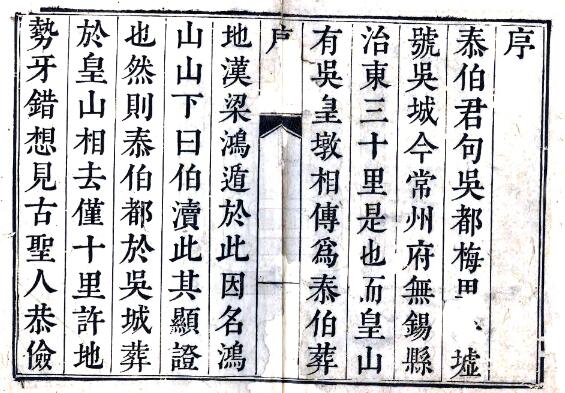 序
泰伯君句吳都梅里、墟
號吳城今常州府無錫縣
治東三十里是也而皇山
有吳皇墩相傳爲泰伯葬
序
一
地漢梁鴻遁於此因名鴻
山山下曰伯瀆此其顯證
也然則泰伯都於吳城葬
於皇山相去僅十里許地
勢牙錯想見古聖人恭儉